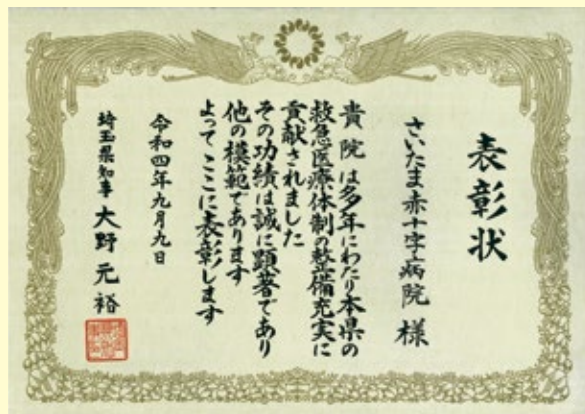 表彰状
さいたま赤十字病院 様
貴院は多年にわたり本県の
救急医療体制の整備充実に
貢献されました
その功績は誠に顕著であり
他の模範であります
よってここに表彰します
令和四年九月九日
埼玉県知事 大野元裕